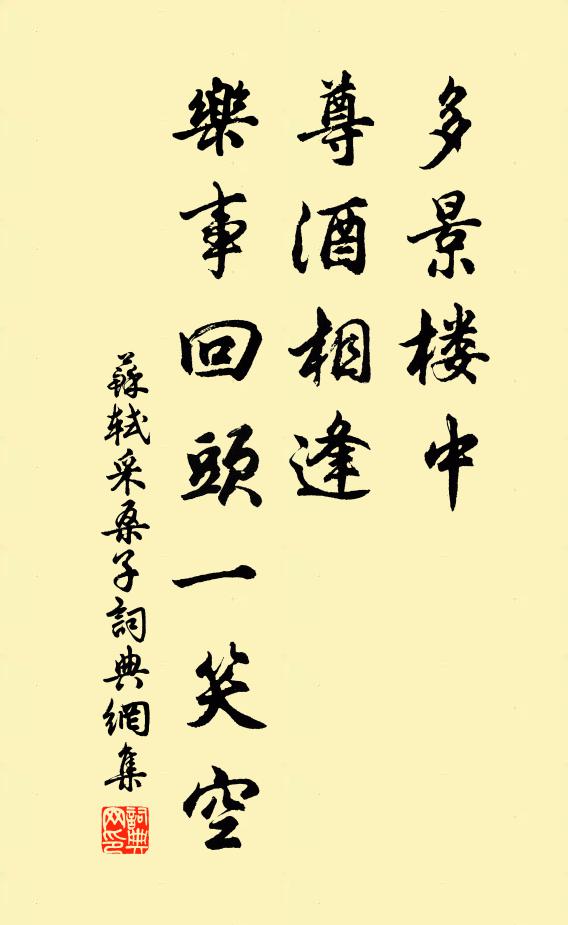 多景楼中
尊酒相逢
樂事回頭一笑空
蘇軾采桑子詞典網集
詞典网印